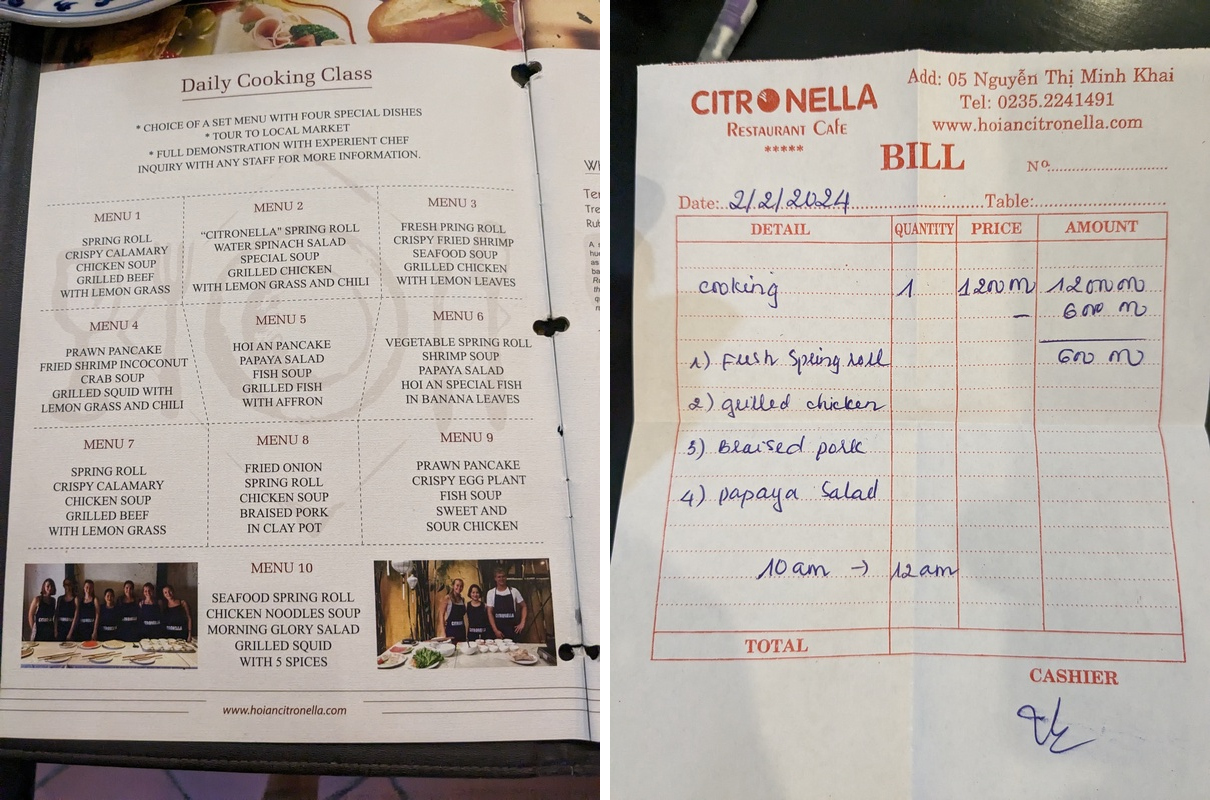 Daily Cooking Class
* CHOICE OF A SET MENU WITH FOUR SPECIAL DISHES
* TOUR TO LOCAL MARKET
* FULL DEMONSTRATION WITH EXPERIENT CHEF
INQUIRY WITH ANY STAFF FOR MORE INFORMATION.
MENU 1
SPRING ROLL
CRISPY CALAMARY
CHICKEN SOUP
GRILLED BEEF
WITH LEMON GRASS
MENU 2
“CITRONELLA” SPRING ROLL
WATER SPINACH SALAD
SPECIAL SOUP
GRILLED CHICKEN
WITH LEMON GRASS AND CHILI
MENU 3
FRESH PRING ROLL
CRISPY FRIED SHRIMP
SEAFOOD SOUP
GRILLED CHICKEN
WITH LEMON LEAVES
MENU 4
PRAWN PANCAKE
FRIED SHRIMP INCOCONUT
CRAB SOUP
GRILLED SQUID WITH
LEMON GRASS AND CHILI
MENU 5
HOI AN PANCAKE
PAPAYA SALAD
FISH SOUP
GRILLED FISH
WITH AFFRON
MENU 6
VEGETABLE SPRING ROLL
SHRIMP SOUP
PAPAYA SALAD
HOI AN SPECIAL FISH
IN BANANA LEAVES
MENU 7
SPRING ROLL
CRISPY CALAMARY
CHICKEN SOUP
GRILLED BEEF
WITH LEMON GRASS
MENU 8
FRIED ONION
SPRING ROLL
CHICKEN SOUP
BRAISED PORK
IN CLAY POT
MENU 9
PRAWN PANCAKE
CRISPY EGG PLANT
FISH SOUP
SWEET AND
SOUR CHICKEN
MENU 10
SEAFOOD SPRING ROLL
CHICKEN NOODLES SOUP
MORNING GLORY SALAD
GRILLED SQUID
WITH 5 SPICES
www.hoiancitronella.com
CITRONELLA
RESTAURANT CAFE
*****
Add: 05 Nguyễn Thị Minh Khai
Tel: 0235.2241491
www.hoiancitronella.com
BILL
Nº
Date: 2/2/2024 Table:
DETAIL QUANTITY PRICE AMOUNT
cooking 1 1200 m 1200 m
– 600 m
1) Fresh Spring roll 600 m
2) grilled chicken
3) Braised pork
4) papaya Salad
10am → 12am
TOTAL
CASHIER